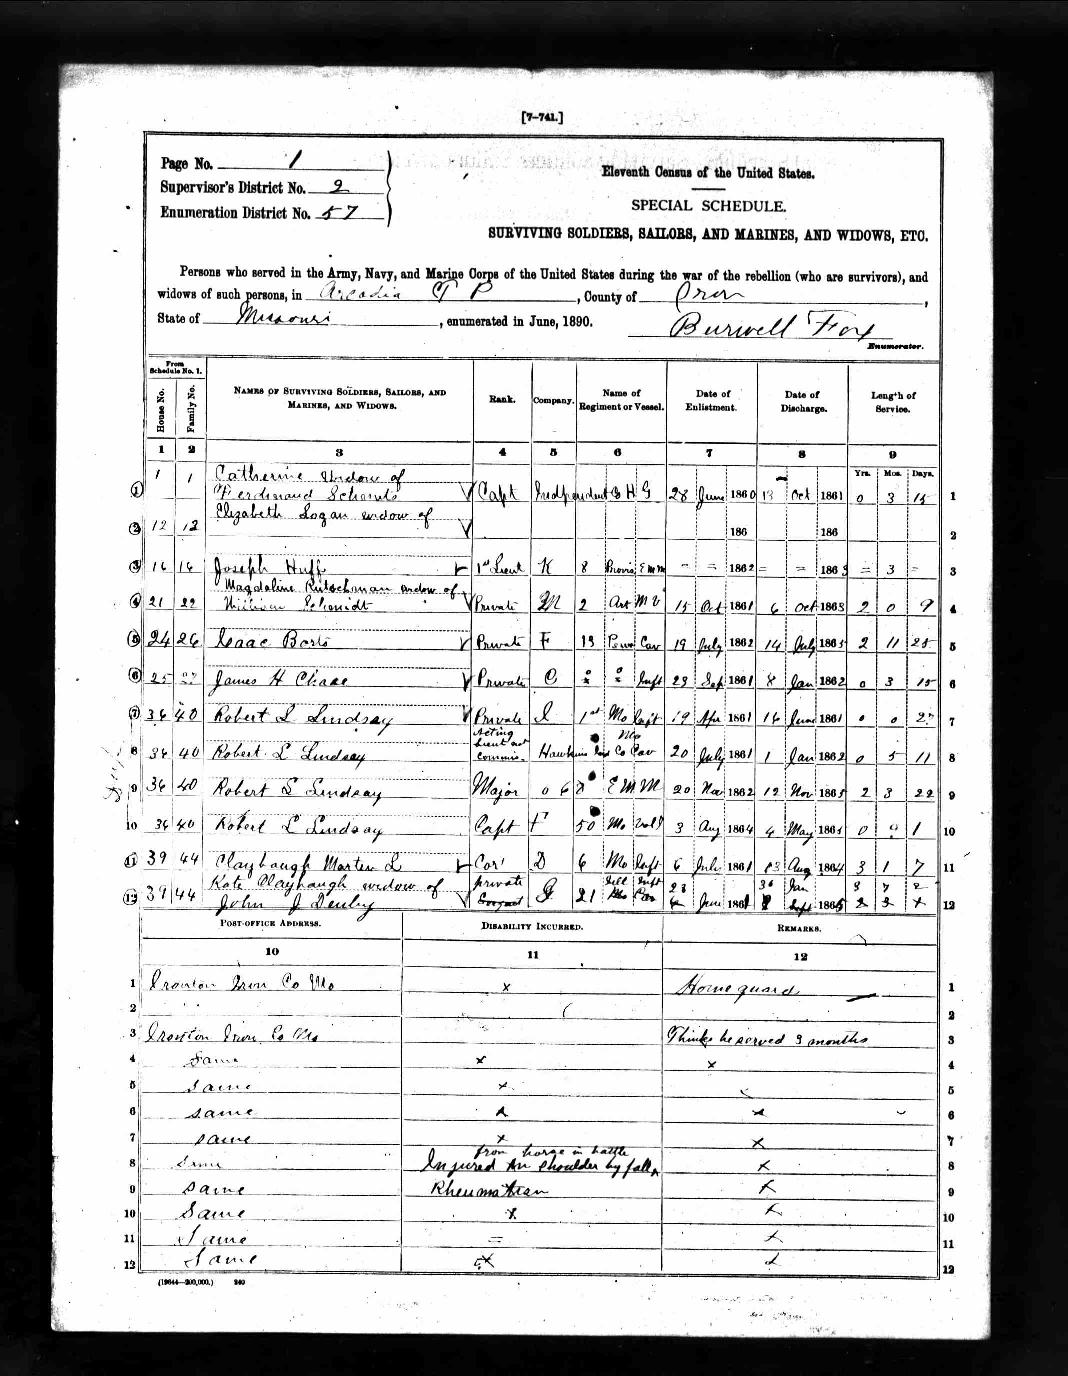 [7-741.]
Page No. 1
Supervisor's District No. 2
Enumeration District No. 57
Eleventh Census of the United States.
SPECIAL SCHEDULE.
SURVIVING SOLDIERS, SAILORS, AND MARINES, AND WIDOWS, ETC.
Persons who served in the Army, Navy, and Marine Corps of the United States during the war of the rebellion (who are survivors), and
widows of such persons, in Arcadia T P, County of Iron,
State of Missouri, enumerated in June, 1890. Burwell Fox
Enumerator.
From Schedule No. 1.
House No. Family No. NAMES OF SURVIVING SOLDIERS, SAILORS, AND MARINES, AND WIDOWS. Rank. Company. Name of Regiment or Vessel. Date of Enlistment. Date of Discharge. Length of Service.
1 2 3 4 5 6 7 8 9
Yrs. Mos. Days.
1 1 Catherine Widow of
Ferdinand Capt Independent H G 28 June 1860 13 Oct 1861 0 3 15 1
12 12 Elizabeth Logan widow of 186 186 2
16 16 Joseph Huff 1st Lieut K 8 Provis E M M = = 1862 = = 1863 = 3 = 3
Magdaline widow of
21 22 William Schmidt Private M 2 Art M V 15 Oct 1861 6 Oct 1863 2 0 9 4
24 26 Isaac Private F 13 Cav 19 July 1862 14 July 1865 2 11 25 5
25 James H Chase Private C Inft 23 Sep 1861 8 Jan 1862 0 3 15 6
36 40 Robert L Lindsay Private I 1st Mo Inft 19 Apr 1861 16 June 1861 0 0 7
36 40 Robert L Lindsay Acting Lieut not commis. Hawkins Ind Co Mo Cav 20 July 1861 1 Jan 1862 0 5 11 8
36 40 Robert L Lindsay Major 68 E M M 20 Nov 1862 12 Nov 1865 2 3 22 9
36 40 Robert L Lindsay Capt F 50 Mo Vol 3 Aug 1864 4 May 1865 0 9 1 10
39 44 Claybaugh Marten L Cor D 6 Mo Inft 6 July 1861 13 Aug 1864 3 1 7 11
Kate Claybaugh widow of
39 44 John J private G 21 Ill Inft 28 June 1861 Jan 12
POST-OFFICE ADDRESS. DISABILITY INCURRED. REMARKS.
10 11 12
1 Ironton Iron Co Mo x Home guard 1
2 2
3 Ironton Iron Co Mo Thinks he served 3 months 3
4 Same x x 4
5 Same x 5
6 Same x x 6
7 Same x x 7
from horse in battle
8 Same Injured in shoulder by fall x 8
9 Same Rheumatism x 9
10 Same x x 10
11 Same = x 11
12 Same x x 12
(19644—200,000.) 240